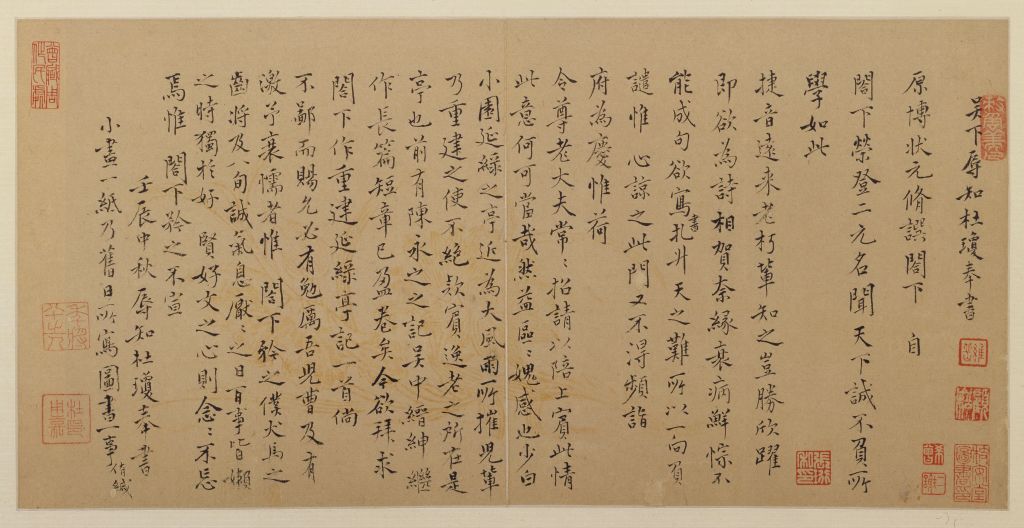 吳下辱知杜瓊奉書
原博狀元脩譔閤下 自
閤下榮登二元名聞天下誠不負所
學如此
捷音遠來老朽輩知之豈勝欣躍
即欲為詩相賀奈緣衰病鮮悰不
能成句欲寫書扎升天之難所以一向負
譴惟 心諒之此門又不得頻詣
府為慶惟荷
令尊老大夫常〻招請以陪上賓此情
此意何可當哉然益區〻媿感也少白
小園延綠之亭近為大風雨所摧児輩
乃重建之使不絕欵賓逸老之所在是
亭也前有陳永之之記吳中縉紳繼
作長篇短章已盈卷矣今欲拜求
閤下作重建延綠亭記一首倘
不鄙而賜允必有勉厲吾児曹及有
激予衰懦者惟 閤下矜之僕犬馬之
齒將及八旬誠氣息厭〻之日百事皆嬾
之時獨於好 賢好文之心則念〻不忘
焉惟 閤下矜之不宣
壬辰中秋辱知杜瓊奉書
小畫一紙乃舊日所寫圖書一事侑緘